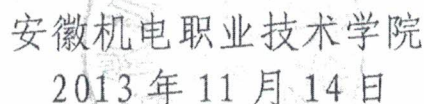 安徽机电职业技术学院
2013年11月14日